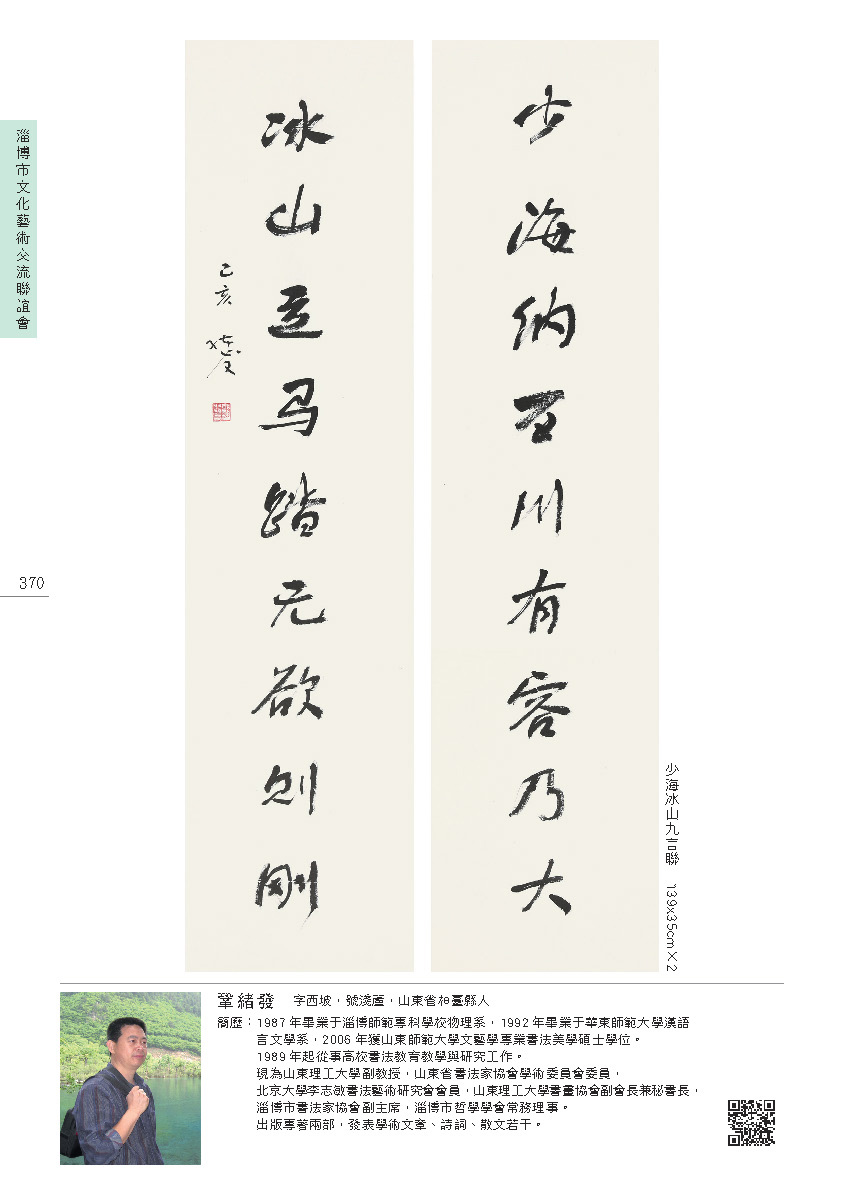 淄博市文化藝術交流聯誼會
370
少海納百川有容乃大
冰山立马踏无欲则刚
己亥
少海冰山九言聯 139x35cm×2
鞏緒發 字西坡，號淺廬，山東省桓臺縣人
簡歷：1987 年畢業于淄博師範專科學校物理系，1992 年畢業于華東師範大學漢語
言文學系，2006 年獲山東師範大學文藝學專業書法美學碩士學位。
1989 年起從事高校書法教育教學與研究工作。
現為山東理工大學副教授，山東省書法家協會學術委員會委員，
北京大學李志敏書法藝術研究會會員，山東理工大學書畫協會副會長兼秘書長，
淄博市書法家協會副主席，淄博市哲學學會常務理事。
出版專著兩部，發表學術文章、詩詞、散文若干。